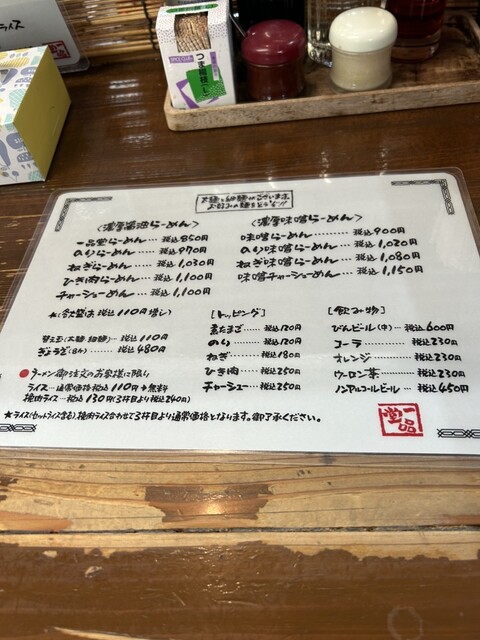 ライス
つま楊枝
太麺と細麺がございます
お好みの麺をどうぞ!!
〈濃厚醤油らーめん〉
一品堂らーめん……税込850円
のりらーめん……税込970円
ねぎらーめん……税込1,030円
ひき肉らーめん……税込1,100円
チャーシューめん……税込1,100円
〈濃厚味噌らーめん〉
味噌らーめん……税込900円
のり味噌らーめん……税込1,020円
ねぎ味噌らーめん……税込1,080円
味噌チャーシューめん……税込1,150円
税込110円増し)
替え玉(太麺・細麺)…税込110円
ぎょうざ…税込480円
[トッピング]
煮たまご……税込120円
のり……税込120円
ねぎ……税込180円
ひき肉……税込250円
チャーシュー…税込250円
[飲み物]
びんビール(中)…税込600円
コーラ……税込230円
オレンジ……税込230円
ウーロン茶……税込230円
ノンアルコールビール…税込450円
●ラーメン御注文のお客様に限り
ライス…通常価格税込110円→無料
挽肉ライス…税込130円(3杯目より税込240円)
★ライス(セットライス含む)、挽肉ライス合わせて3杯目より通常価格となります。御了承ください。
一品堂